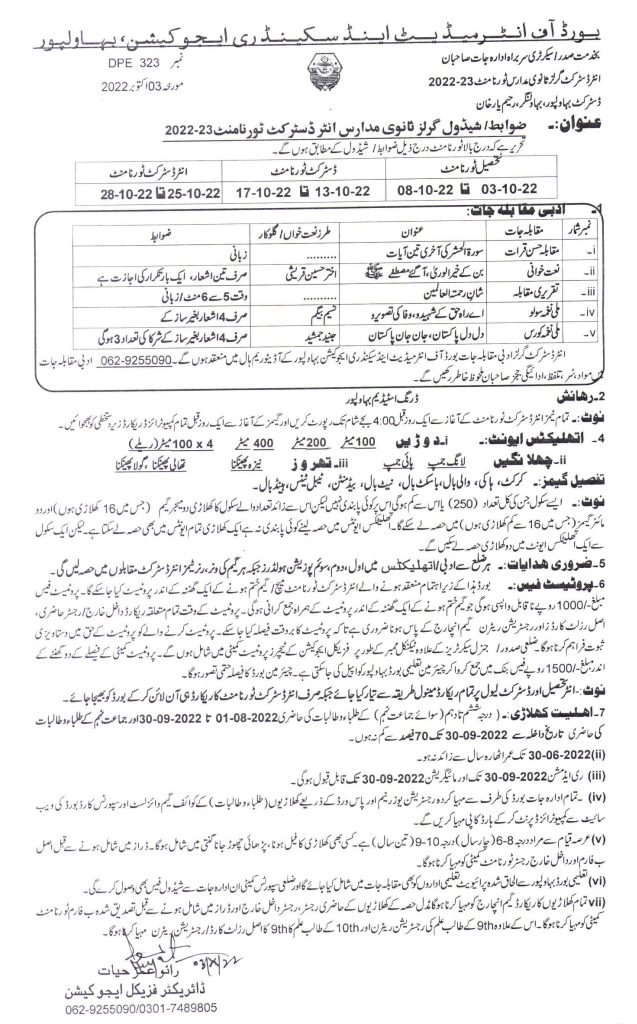 بورڈ آف انٹرمیڈیٹ اینڈ سکینڈری ایجوکیشن، بہاولپور
بخدمت صدر/سیکرٹری سربراہ ادارہ جات صاحبان
نمبر DPE 323
انٹر ڈسٹرکٹ گرلز ثانوی مدارس ٹورنامنٹ 23-2022
مورخہ 03 اکتوبر 2022
ڈسٹرکٹ بہاولپور، بہاولنگر، رحیم یار خان
عنوان:۔ ضوابط/شیڈول گرلز ثانوی مدارس انٹر ڈسٹرکٹ ٹورنامنٹ 23-2022
تحریر ہے کہ درج بالا ٹورنامنٹ درج ذیل ضوابط/شیڈول کے مطابق ہوں گے۔
تحصیل ٹورنامنٹ ڈسٹرکٹ ٹورنامنٹ انٹر ڈسٹرکٹ ٹورنامنٹ
03-10-22 تا 08-10-22 13-10-22 تا 17-10-22 25-10-22 تا 28-10-22
1۔ ادبی مقابلہ جات:۔
نمبر شمار مقابلہ جات عنوان طرز نعت خواں/گلوکار ضوابط
i۔ مقابلہ حسن قرات سورۃ الحشر کی آخری تین آیات ......... زبانی
ii۔ نعت خوانی بن کے خیر الوریٰ، آگئے مصطفےٰ ﷺ اختر حسین قریشی صرف تین اشعار، ایک بار تکرار کی اجازت ہے
iii۔ تقریری مقابلہ شان رحمتہ العالمین ......... وقت 5 سے 6 منٹ/زبانی
iv۔ ملی نغمہ سولو اے راہ حق کے شہیدو، وفا کی تصویرو نسیم بیگم صرف 4 اشعار بغیر ساز کے
v۔ ملی نغمہ کورس دل دل پاکستان، جان جان پاکستان جنید جمشید صرف 4 اشعار بغیر ساز کے شرکا کی تعداد 3 ہوگی
انٹر ڈسٹرکٹ گرلز ادبی مقابلہ جات بورڈ آف انٹرمیڈیٹ اینڈ سیکنڈری ایجوکیشن بہاولپور کے آڈیٹوریم ہال میں منعقد ہوں گے۔ 062-9255090 ادبی مقابلہ جات
میں مواد، سر، تلفظ، ادائیگی ججز صاحبان ملحوظ خاطر رکھیں گے۔
2۔ رہائش ڈرنگ اسٹیڈیم بہاولپور
نوٹ:۔ تمام ٹیمز انٹر ڈسٹرکٹ ٹورنامنٹ کے آغاز سے ایک روز قبل 4:00 بجے شام تک رپورٹ کریں اور گیمز کے آغاز سے ایک روز قبل تمام کمپیوٹرائزڈ ریکارڈ زیر دستخطی کو بھجوائیں۔
4۔ اتھلیٹکس ایونٹ:۔ i۔ دوڑیں 100 میٹر 200 میٹر 400 میٹر 4 x 100 میٹر (ریلے)
ii۔ چھلانگیں لانگ جمپ ہائی جمپ iii۔ تھروز نیزہ پھینکنا تھالی پھینکنا، گولا پھینکنا
تفصیل گیمز:۔ کرکٹ، ہاکی، والی بال، باسکٹ بال، نیٹ بال، بیڈمنٹن، ٹیبل ٹینس، ہینڈ بال۔
نوٹ:۔ ایسے سکول جن کی کل تعداد (250) یا اس سے کم ہوگی اس پر کوئی پابندی نہیں لیکن اس سے زائد تعداد والے سکول کا کھلاڑی دو میجر گیم (جس میں 16 کھلاڑی ہوں) اور دو
مائنر گیمز (جس میں 16 سے کم کھلاڑی ہوں) میں حصہ لے سکے گا۔ اتھلیٹکس ایونٹس میں حصہ لینے کوئی پابندی نہ ہے ایک کھلاڑی تمام ایونٹس میں بھی حصہ لے سکتا ہے۔ لیکن ایک سکول
سے ایک اتھلیٹکس ایونٹ میں دو کھلاڑی حصہ لے سکیں گے۔
5۔ ضروری ہدایات:۔ ہر ضلع سے ادبی/اتھلیٹکس میں اول، دوم، سوئم پوزیشن ہولڈرز جبکہ ہر گیم کی ونر، رنر ٹیمز انٹر ڈسٹرکٹ مقابلوں میں حصہ لیں گی۔
6۔ پروٹیسٹ فیس:۔ بورڈ ہذا کے زیر اہتمام منعقد ہونے والے انٹر ڈسٹرکٹ ٹورنامنٹ میچ/گیم ختم ہونے کے ایک گھنٹہ کے اندر پروٹیسٹ کیا جا سکے گا۔ پروٹیسٹ فیس
مبلغ -/1000 روپے ناقابل واپسی ہوگی جو گیم ختم ہونے کے ایک گھنٹہ کے اندر پروٹیسٹ کے ہمراہ جمع کرانی ہوگی۔ پروٹیسٹ کے وقت تمام متعلقہ ریکارڈ داخل خارج/رجسٹر حاضری،
اصل رزلٹ کارڈز اور رجسٹریشن ریٹرن گیم انچارج کے پاس ہونا ضروری ہے تاکہ پروٹیسٹ کا بروقت فیصلہ کیا جا سکے۔ پروٹیسٹ کرنے والے کو پروٹیسٹ کے حق میں دستاویزی
ثبوت فراہم کرنا ہوگا۔ ضلعی صدور/جنرل سیکرٹریز کے علاوہ ٹیکنیکل ممبر کے طور پر فزیکل ایجوکیشن کے ٹیچرز پروٹیسٹ کمیٹی میں شامل ہوں گے۔ پروٹیسٹ کمیٹی کے فیصلے کے دو گھنٹے کے
اندر مبلغ -/1500 روپے فیس بنک میں جمع کروا کر چیئرمین تعلیمی بورڈ بہاولپور کو اپیل کی جاسکتی ہے۔ چیئرمین بورڈ کا فیصلہ حتمی تصور ہوگا۔
نوٹ:۔ انٹر تحصیل اور ڈسٹرکٹ لیول پر تمام ریکارڈ مینول طریقہ سے تیار کیا جائے جبکہ صرف انٹر ڈسٹرکٹ ٹورنامنٹ کا ریکارڈ ہی آن لائن کر کے بورڈ کو بھیجا جائے۔
7۔ اہلیت کھلاڑی:۔ (درجہ ششم تا دہم (سوائے جماعت نہم) کے طلباء و طالبات کی حاضری 01-08-2022 تا 30-09-2022 اور جماعت نہم کے طلباء و طالبات
کی حاضری تاریخ داخلہ سے 30-09-2022 تک 70 فیصد سے کم نہ ہوں۔
(ii) 30-06-2022 تک عمر اٹھارہ سال سے زائد نہ ہو۔
(iii) ری ایڈمشن 30-09-2022 تک اور مائیگریشن 30-09-2022 تک قابل قبول ہوگی۔
(iv)۔ تمام ادارہ جات بورڈ کی طرف سے مہیا کردہ رجسٹریشن یوزر نیم اور پاس ورڈ کے ذریعے کھلاڑیوں (طلباء و طالبات) کے کوائف گیم وائز لسٹ اور سپورٹس کارڈ بورڈ کی ویب
سائیٹ سے کمپیوٹرائزڈ پرنٹ کر کے ہارڈ کاپی مہیا کریں گے۔
(v) عرصہ قیام سے مراد درجہ 8-6 (چار سال) درجہ 10-9 (تین سال) ہے۔ کسی بھی کھلاڑی کا فیل ہونا، پڑھائی چھوڑ جانا گنتی میں شامل ہوگا۔ ڈراز میں شامل ہونے سے قبل اصل
ب فارم اور داخل خارج رجسٹر ٹورنامنٹ کمیٹی کو مہیا کرنا ہوگا۔
(vi) تعلیمی بورڈ بہاولپور سے الحاق شدہ پرائیویٹ تعلیمی اداروں کو بھی مقابلہ جات میں شامل کیا جائے گا اور ضلعی سپورٹس کمیٹی ان ادارہ جات سے شیڈول فیس بھی وصول کرے گی۔
(vii) تمام کھلاڑیوں کا ریکارڈ گیم انچارج کو مہیا کرنا ہوگا مڈل حصہ کے کھلاڑیوں کے حاضری رجسٹر، رجسٹر داخل خارج اور ڈراز میں شامل ہونے سے قبل تصدیق شدہ ب فارم ٹورنامنٹ
کمیٹی کو مہیا کرنا ہوگا۔ اس کے علاوہ 9th کے طالب علم کی رجسٹریشن ریٹرن اور 10th کے طالب علم کا 9th کا اصل رزلٹ کارڈ/رجسٹریشن ریٹرن مہیا کرنا ہوگا۔
رانو عمر حیات
ڈائریکٹر فزیکل ایجوکیشن
062-9255090/0301-7489805